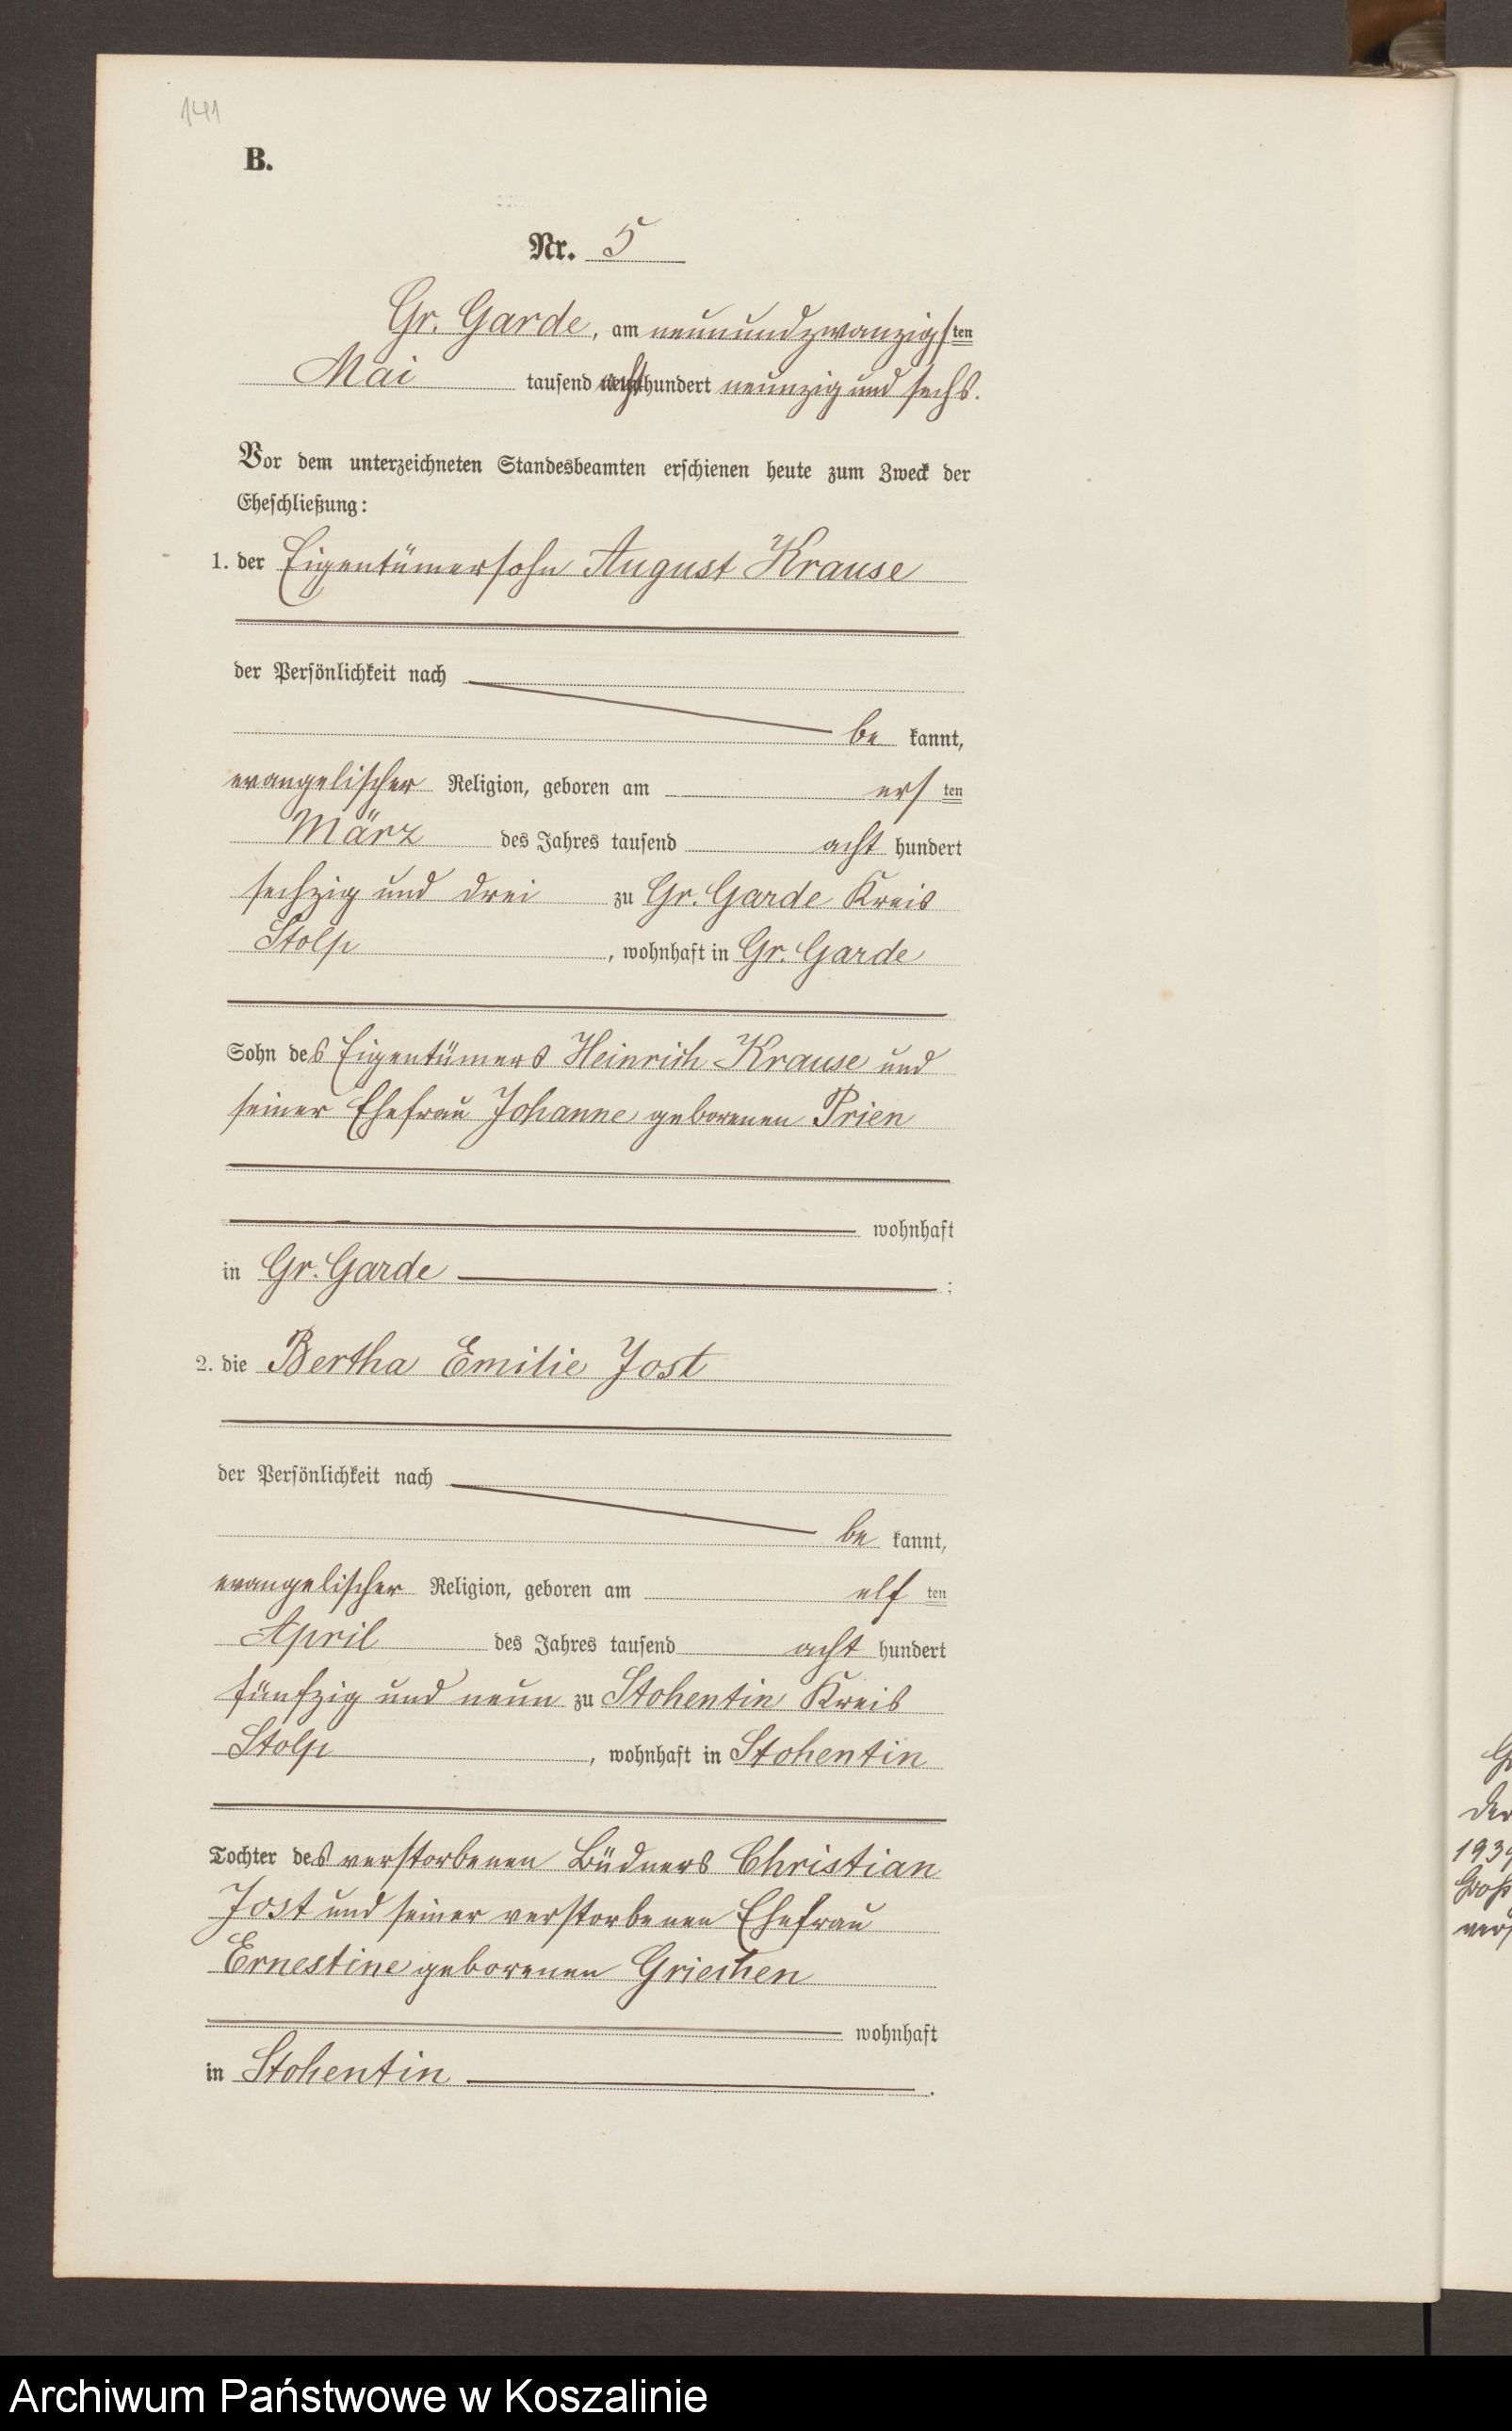 141
B.
Nr. 5
Gr. Garde, am neunundzwanzigsten
Mai tausend achthundert neunzig und sechs.
Vor dem unterzeichneten Standesbeamten erschienen heute zum Zweck der
Eheschließung:
1. der Eigentümersohn August Krause
der Persönlichkeit nach
be kannt,
evangelischer Religion, geboren am ersten
März des Jahres tausend acht hundert
sechzig und drei zu Gr. Garde Kreis
Stolp, wohnhaft in Gr. Garde
Sohn des Eigentümers Heinrich Krause und
seiner Ehefrau Johanne geborenen Prien
wohnhaft
in Gr. Garde :
2. die Bertha Emilie Jost
der Persönlichkeit nach
be kannt,
evangelischer Religion, geboren am elften
April des Jahres tausend acht hundert
fünfzig und neun zu Stohentin Kreis
Stolp, wohnhaft in Stohentin
Tochter des verstorbenen Büdners Christian
Jost und seiner verstorbenen Ehefrau
Ernestine geborenen Griechen
wohnhaft
in Stohentin.
Archiwum Państwowe w Koszalinie